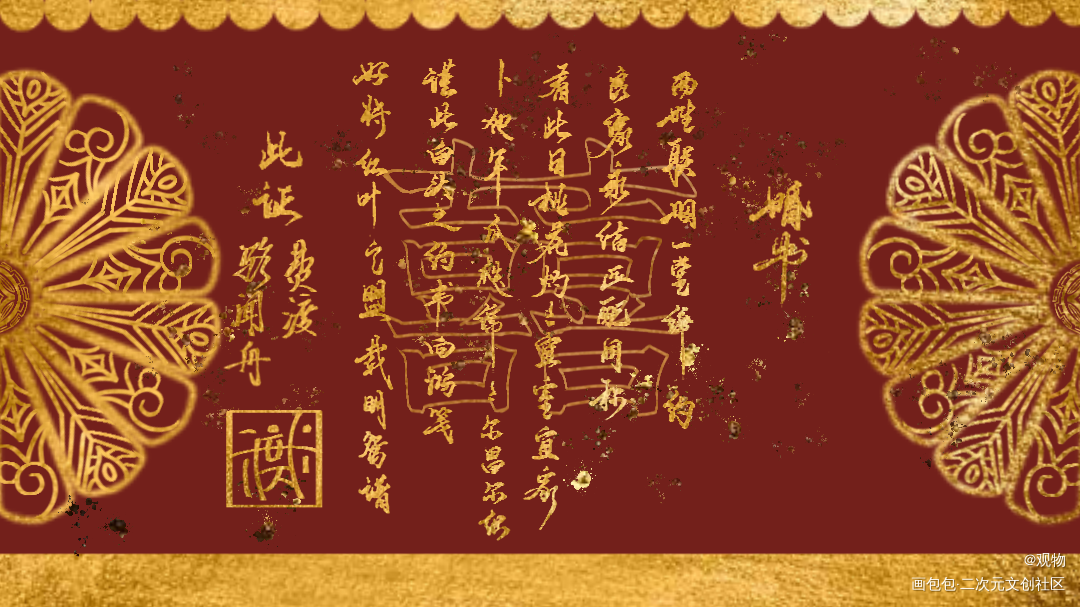 婚书
两姓联姻一堂缔约
良缘永结匹配同称
看此日桃花灼々宜室宜家
卜他年瓜瓞绵々尔昌尔炽
谨此白头之约书向鸿笺
好将红叶之盟载明鸳谱
此证
费渡
骆闻舟
囍
@观物
画包包·二次元文创社区